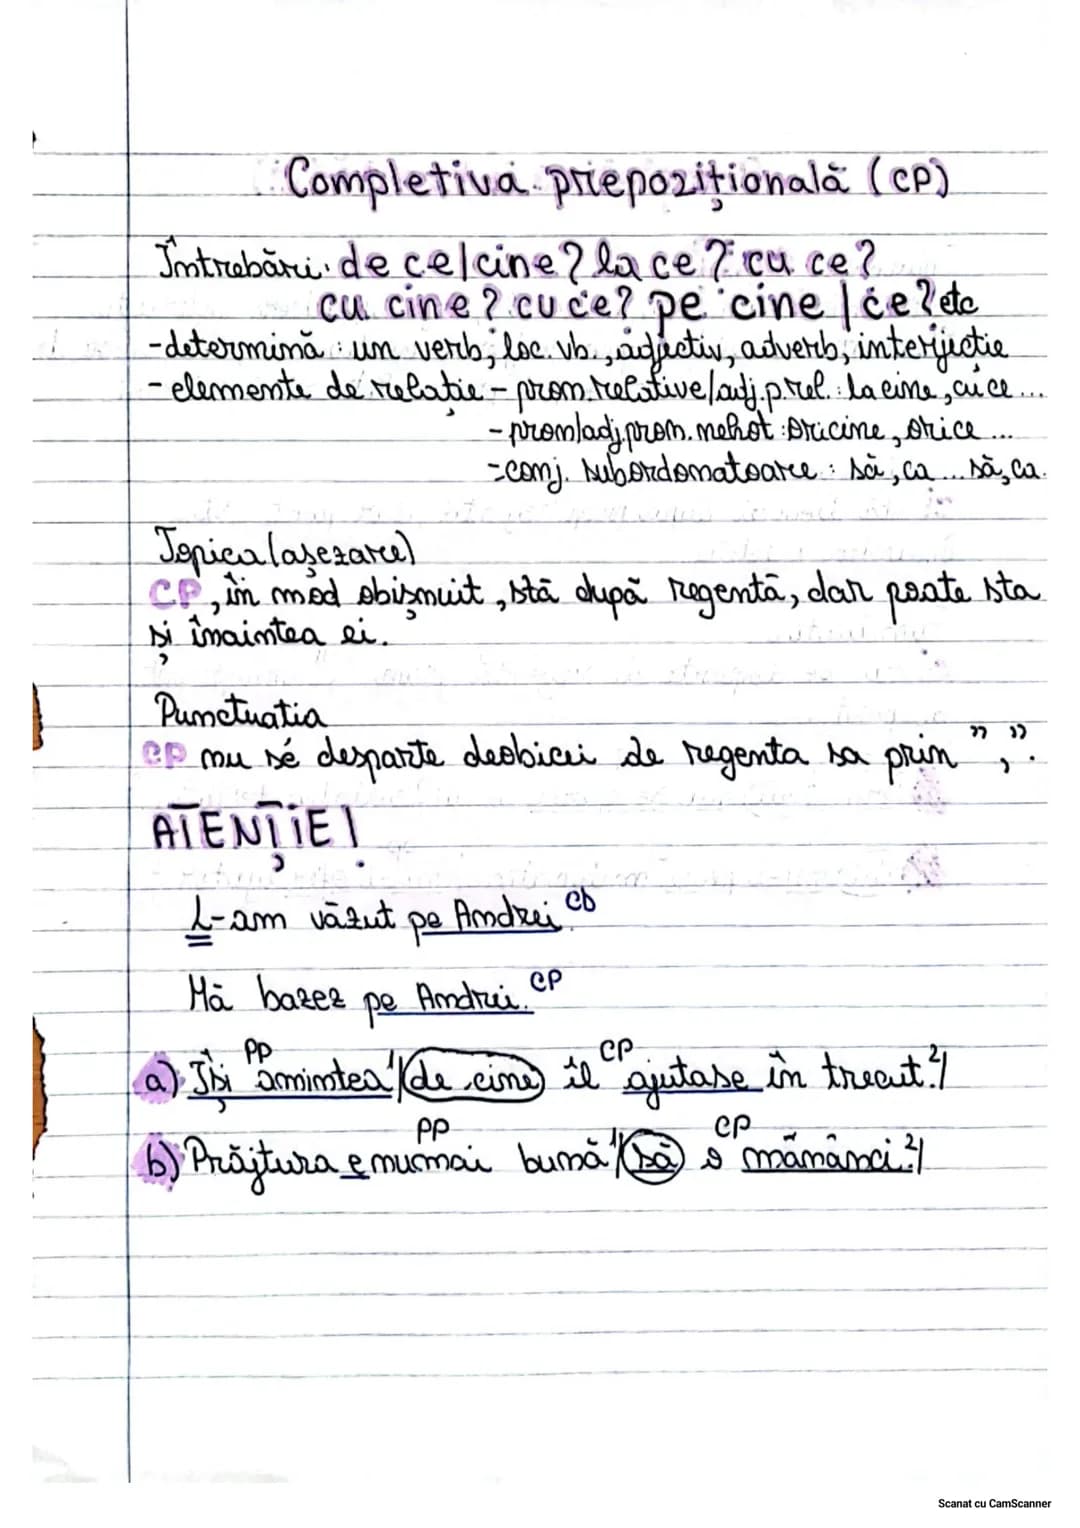 Completivă prepozițională (CP)
Întrebări: de ce/cine? la ce? cu ce?
cu cine? cu ce? pe cine / ce? etc
-determină: un verb, loc. vb., adjectiv, adverb, interjectie
- elemente de relatie - pron. relative/adj.p.rel.: la cine, cu ce ...
- pron/adj.pron. nehot: oricine, orice ...
- conj. subordonatoare: să, ca ... să, ca.
Topica (așezare)
CP, în mod obișnuit, stă după regentă, dar poate sta
și înaintea ei.
Punctuatia
CP nu se desparte deobicei de regenta sa prin ",".
ATENȚIE!
L-am văzut pe Andrei CD
Mă bazez pe Andrei. CP
PP CP
a) Își amintea 1/ de cine îl ajutase în trecut. 2/
PP CP
b) Prăjtura e numai bună 1/ să o mănânci. 2/
Scanat cu CamScanner